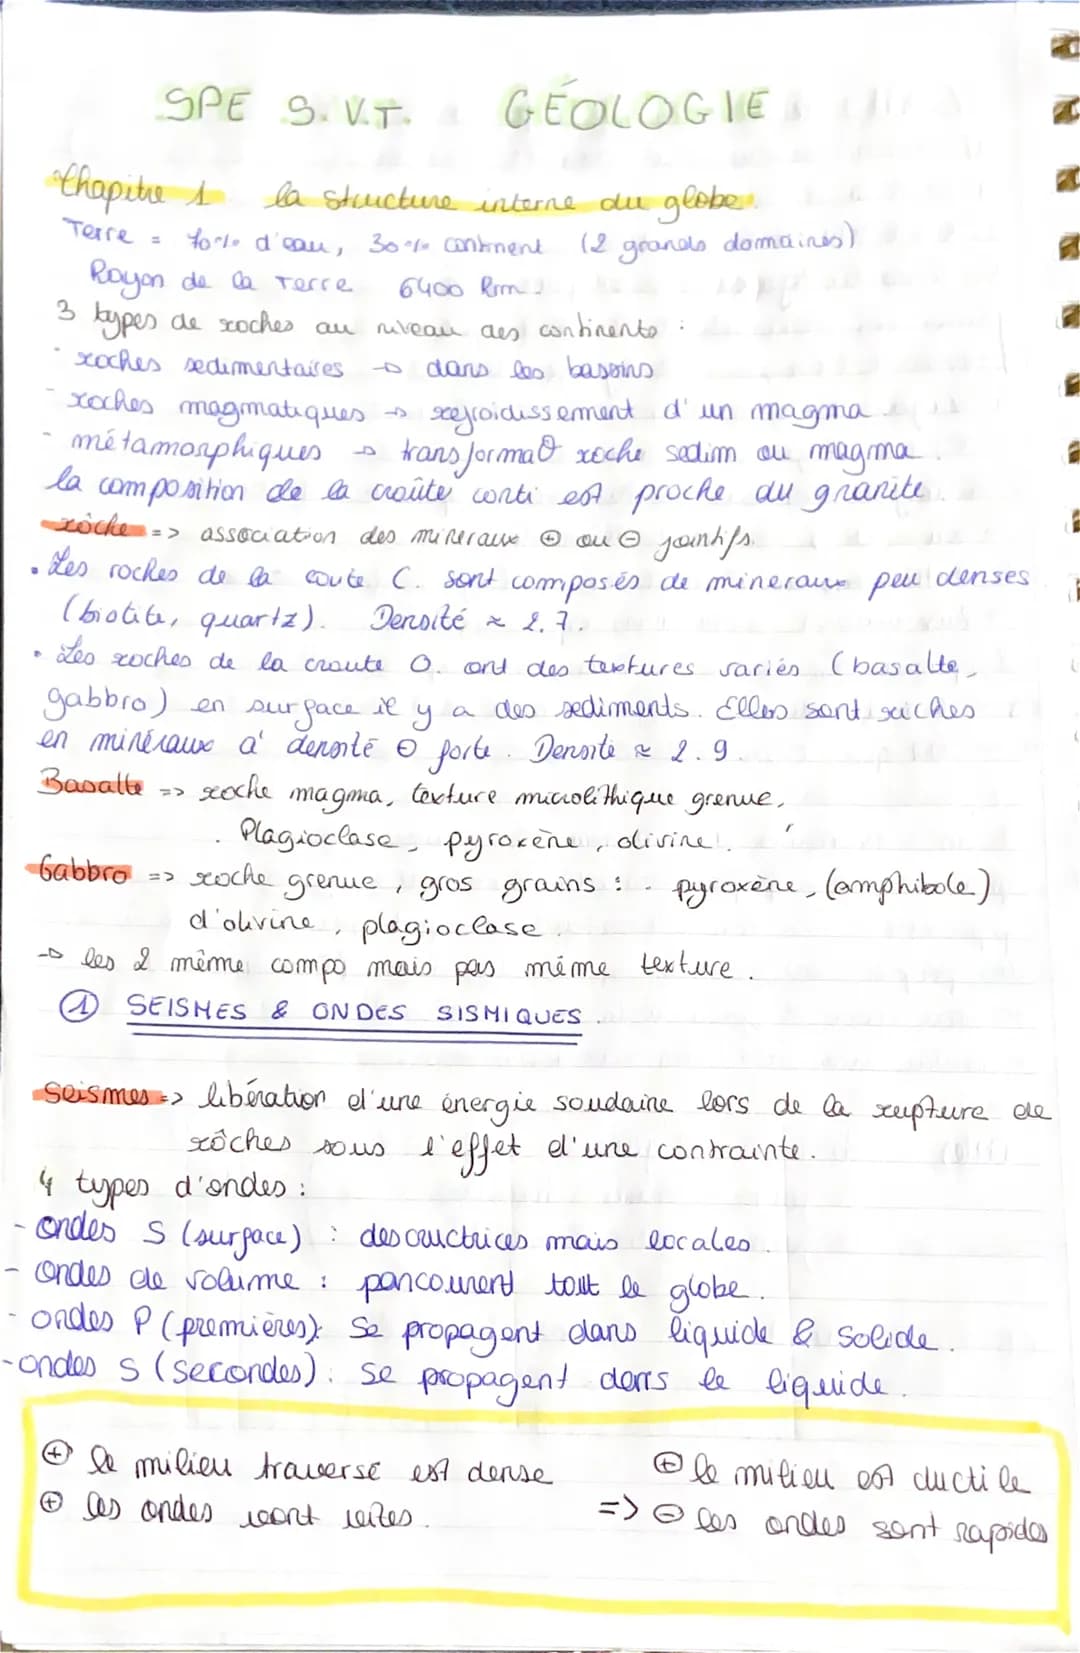 SPE S.V.T. GÉOLOGIE
Chapitre 1 la structure interne du globe.
Terre = 70% d'eau, 30% continent (2 grands domaines)
Rayon de la Terre 6400 km.
3 types de roches au niveau des continents :
- roches sedimentaires → dans les bassins
- roches magmatiques → refroidissement d'un magma.
- métamorphiques → transformat° roche sedim ou magma.
la composition de la croûte conti est proche du granite.
rôche => association des mineraux ⊕ ou ⊖ jointifs.
• Les roches de la coute C. sont composés de mineraux peu denses
(biotite, quartz). Densité ≈ 2.7.
• Les roches de la croute O. ont des textures variés (basalte,
gabbro) en surface il y a des sediments. Elles sont riches
en minéraux à densité ⊖ forte. Densité ≈ 2.9.
Basalte => roche magma, texture microlithique grenue,
Plagioclase, pyroxène, olivine.
Gabbro => roche grenue, gros grains : pyroxène, (amphibole)
d'olivine, plagioclase.
→ les 2 même compo mais pas même texture.
① SEISMES & ONDES SISMIQUES.
Seismes => libération d'une énergie soudaine lors de la rupture de
rôches sous l'effet d'une contrainte.
4 types d'ondes :
- ondes S (surface) : destructrices mais locales.
- ondes de volume : parcourent tout le globe.
- ondes P (premières): Se propagent dans liquide & solide.
- ondes S (secondes): se propagent dans le liquide.
⊕ le milieu traversé est dense ⊕ le milieu est ductile
⊕ les ondes vont vites. => ⊖ les ondes sont rapides